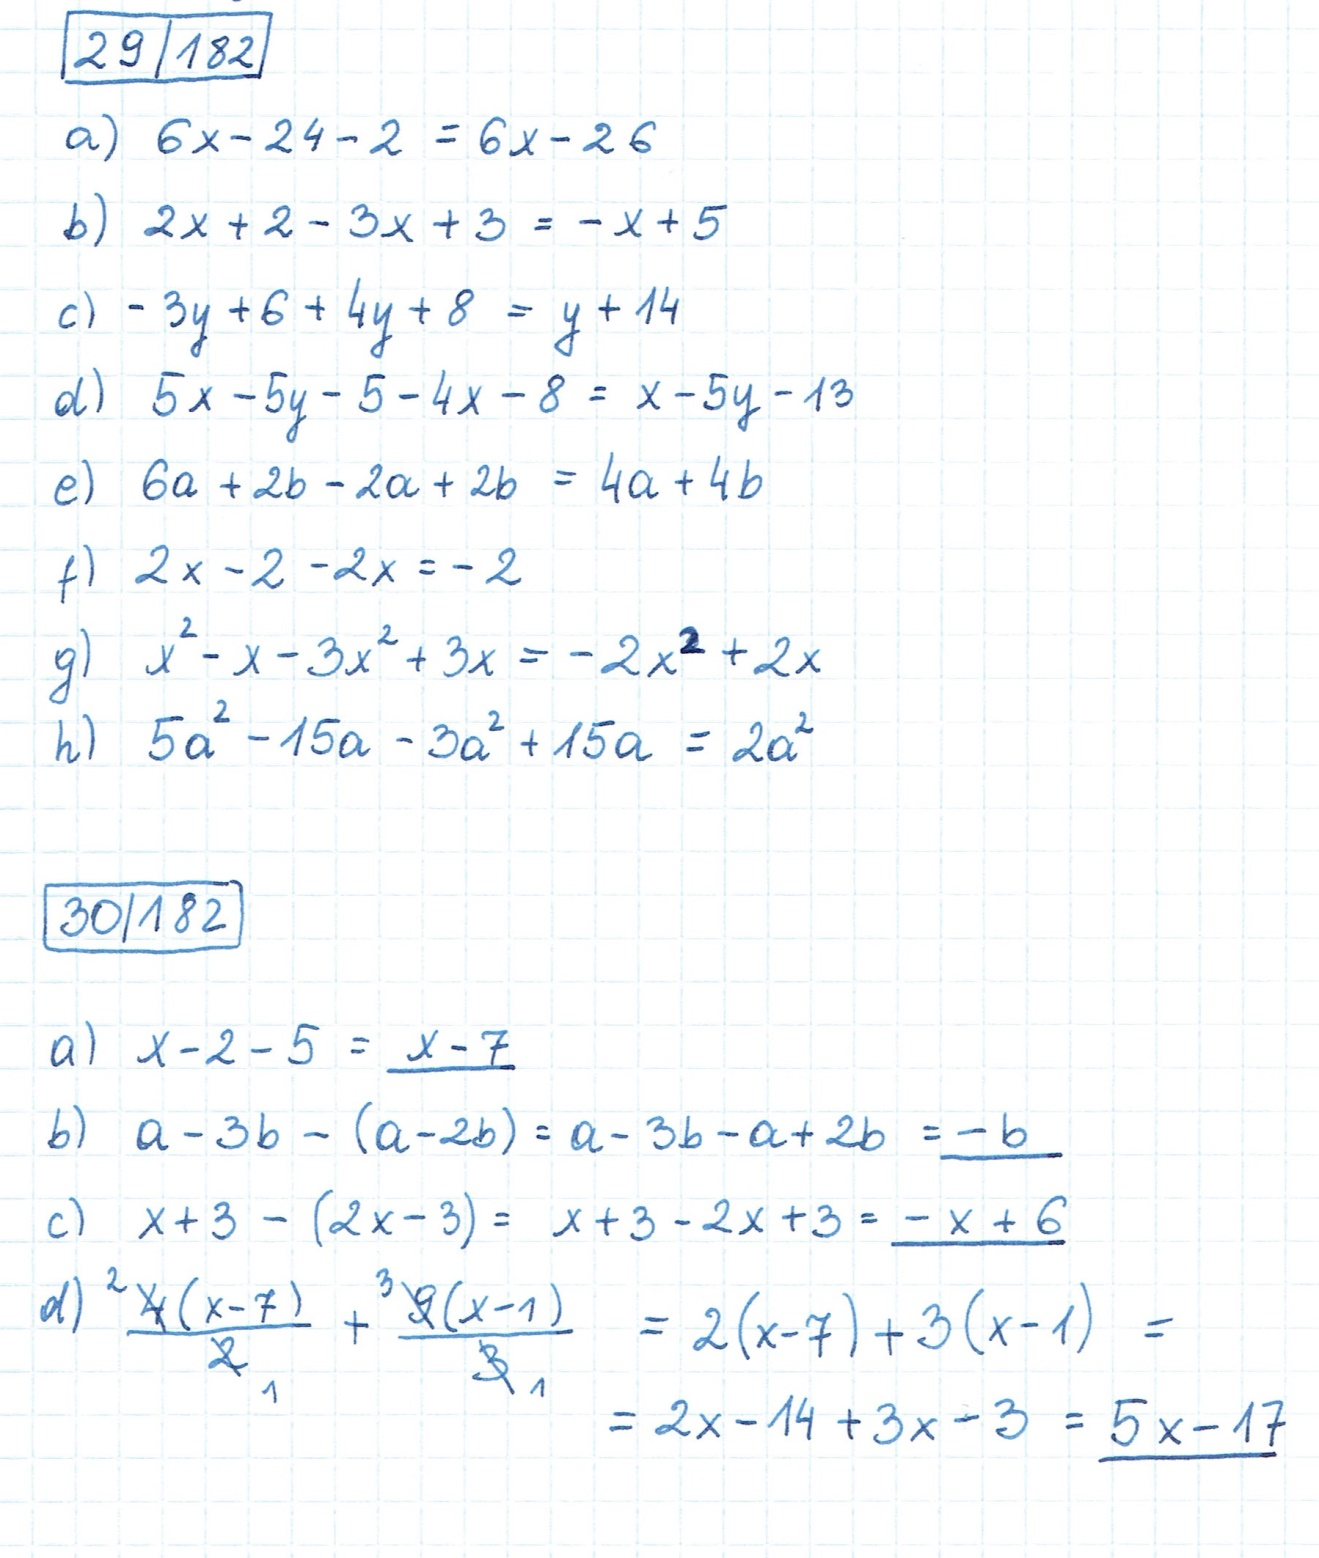 29/182
a) 6x - 24 - 2 = 6x - 26
b) 2x + 2 - 3x + 3 = - x + 5
c) - 3y + 6 + 4y + 8 = y + 14
d) 5x - 5y - 5 - 4x - 8 = x - 5y - 13
e) 6a + 2b - 2a + 2b = 4a + 4b
f) 2x - 2 - 2x = - 2
g) x² - x - 3x² + 3x = - 2x² + 2x
h) 5a² - 15a - 3a² + 15a = 2a²
30/182
a) x - 2 - 5 = x - 7
b) a - 3b - (a - 2b) = a - 3b - a + 2b = - b
c) x + 3 - (2x - 3) = x + 3 - 2x + 3 = - x + 6
d) ² 4(x-7)/2 ₁ + ³ 9(x-1)/3 ₁ = 2(x-7) + 3(x-1) =
= 2x - 14 + 3x - 3 = 5x - 17